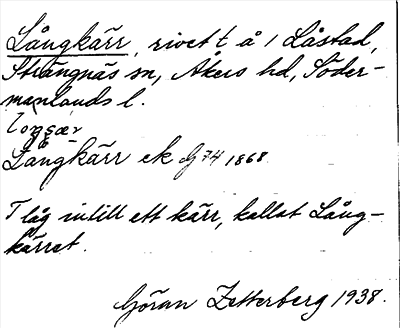 Långkärr, rivet t å 1 Låstad,
Strängnäs sn, Åkers hd, Söder-
manlands l.
Långkärr ek G 74 1868
T låg intill ett kärr, kallat Lång-
kärret.
Göran Zetterberg 1938.